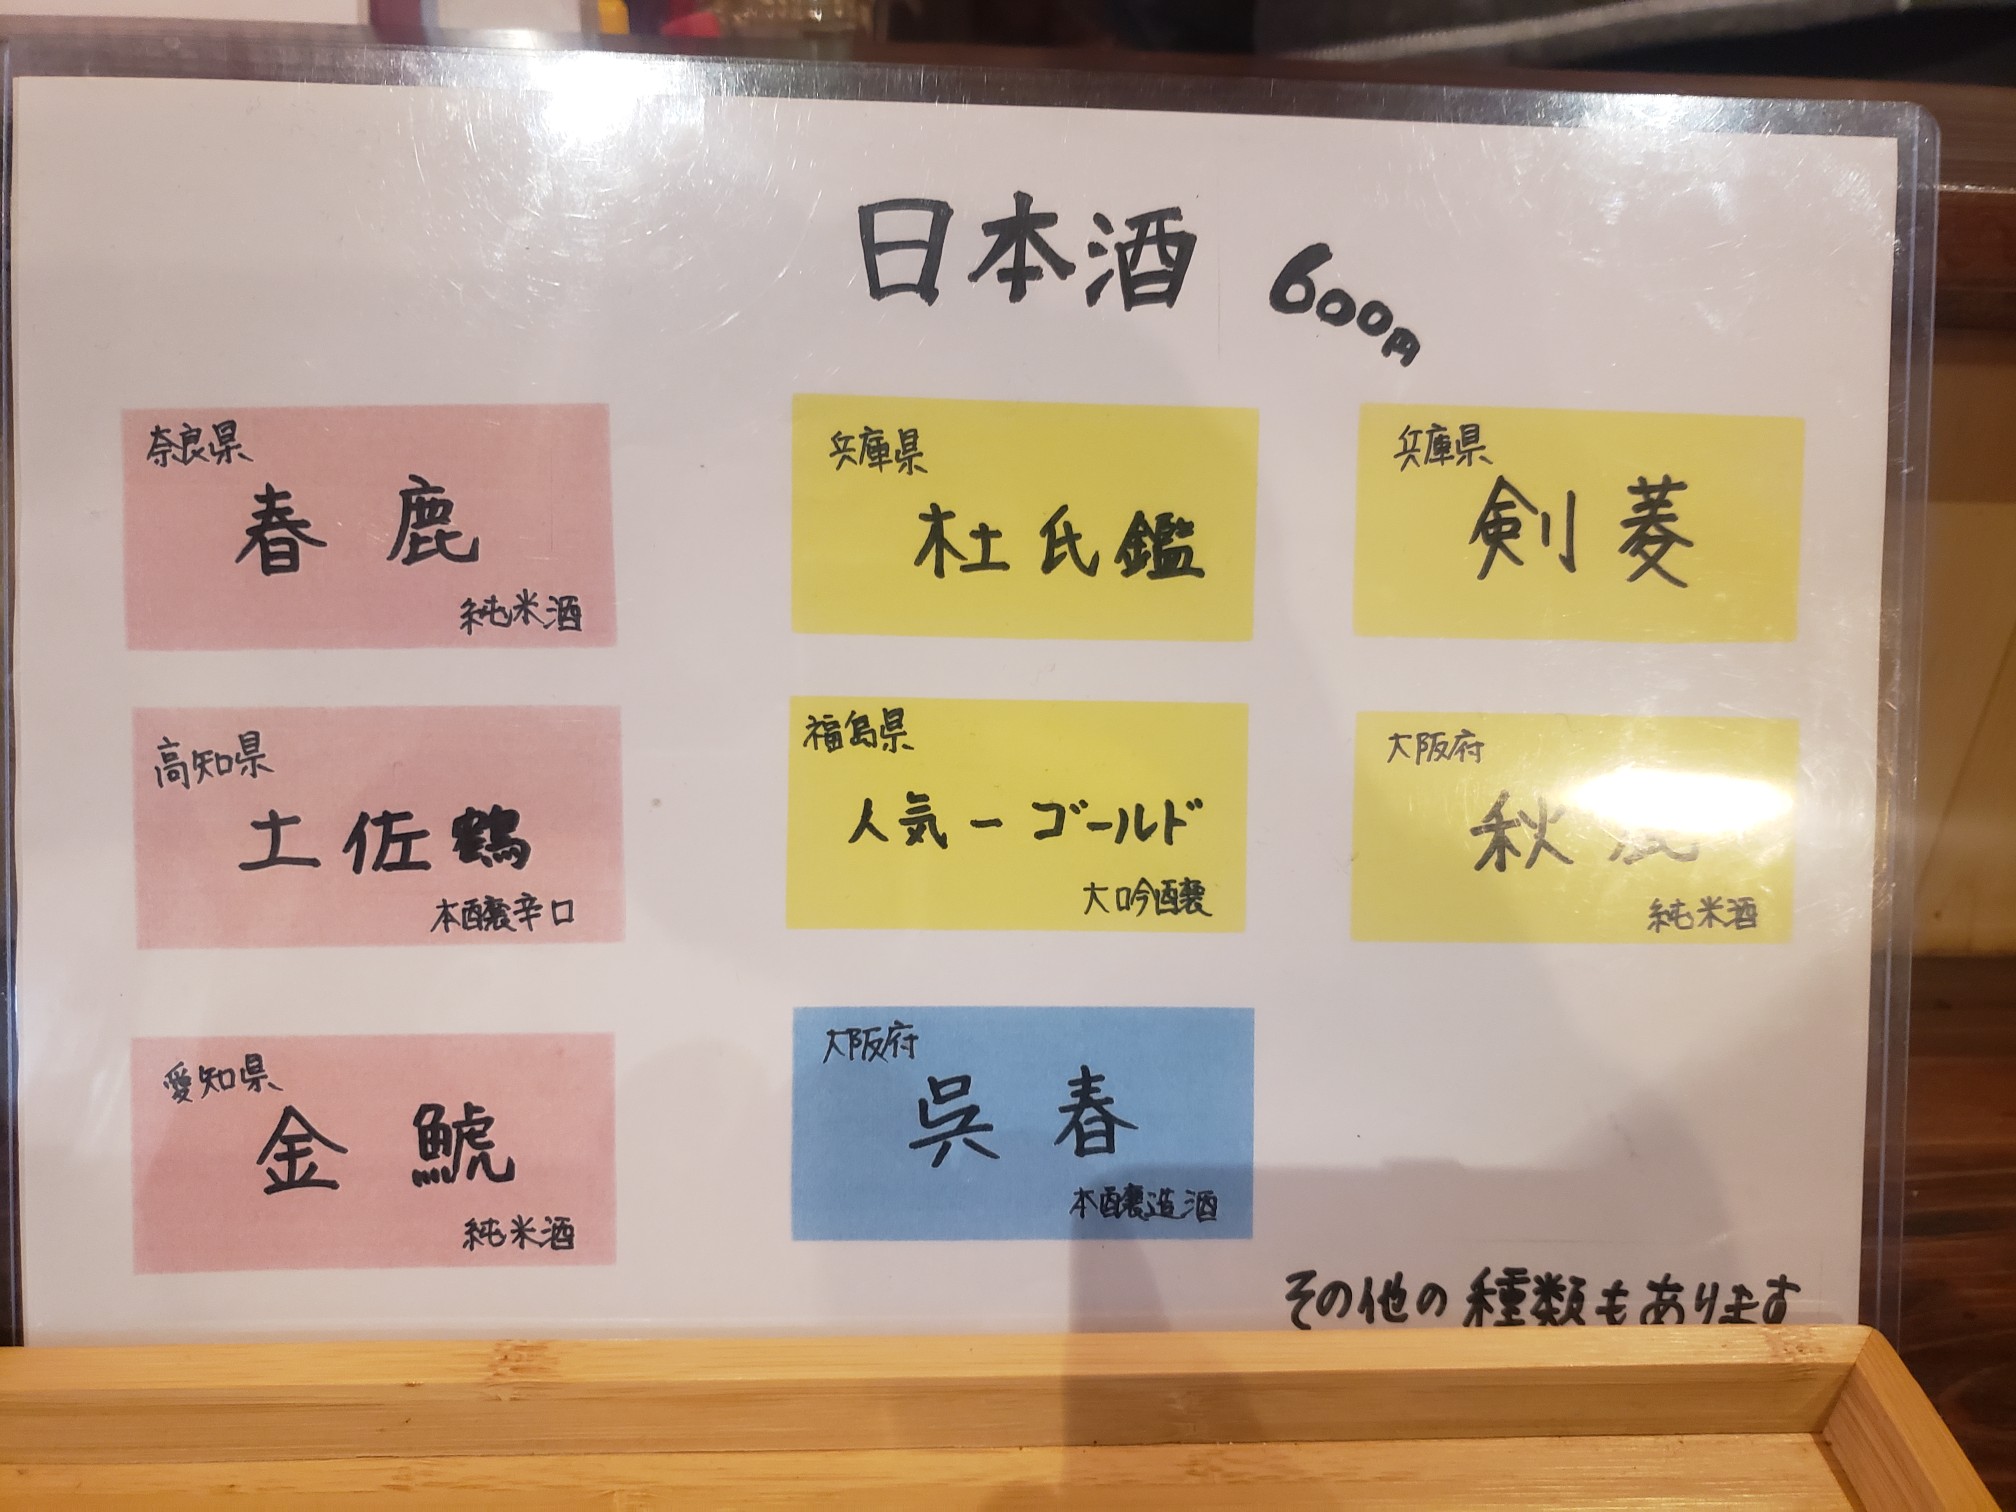 日本酒 600円
奈良県
春鹿
純米酒
兵庫県
杜氏鑑
兵庫県
剣菱
高知県
土佐鶴
本醸辛口
福島県
人気一ゴールド
大吟醸
大阪府
秋
純米酒
愛知県
金鯱
純米酒
大阪府
呉春
本醸造酒
その他の種類もあります